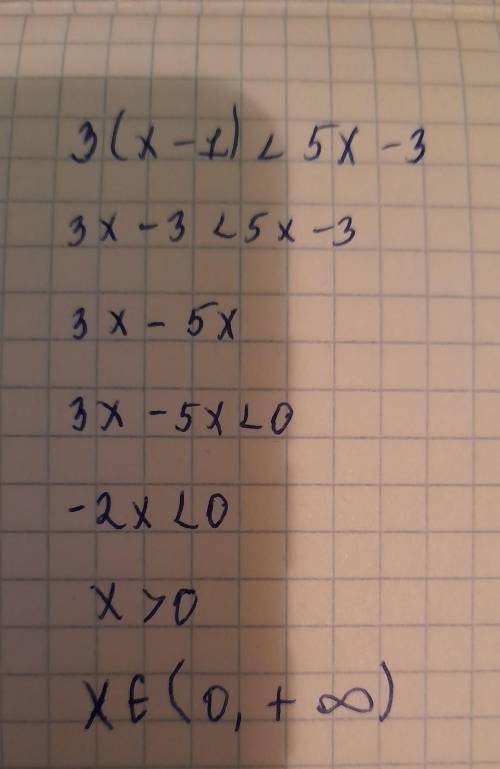 3(x-1) < 5x-3
3x-3 < 5x-3
3x-5x
3x-5x<0
-2x<0
x>0
x∈(0,+∞)